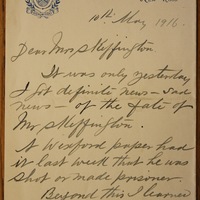 10th May 1916.
Dear Mrs Skeffington
It was only yesterday
I got definite news – sad
news – of the fate of
Mr Skeffington.
A Wexford paper had
it last week that he was
shot or made prisoner.
Beyond this I learned